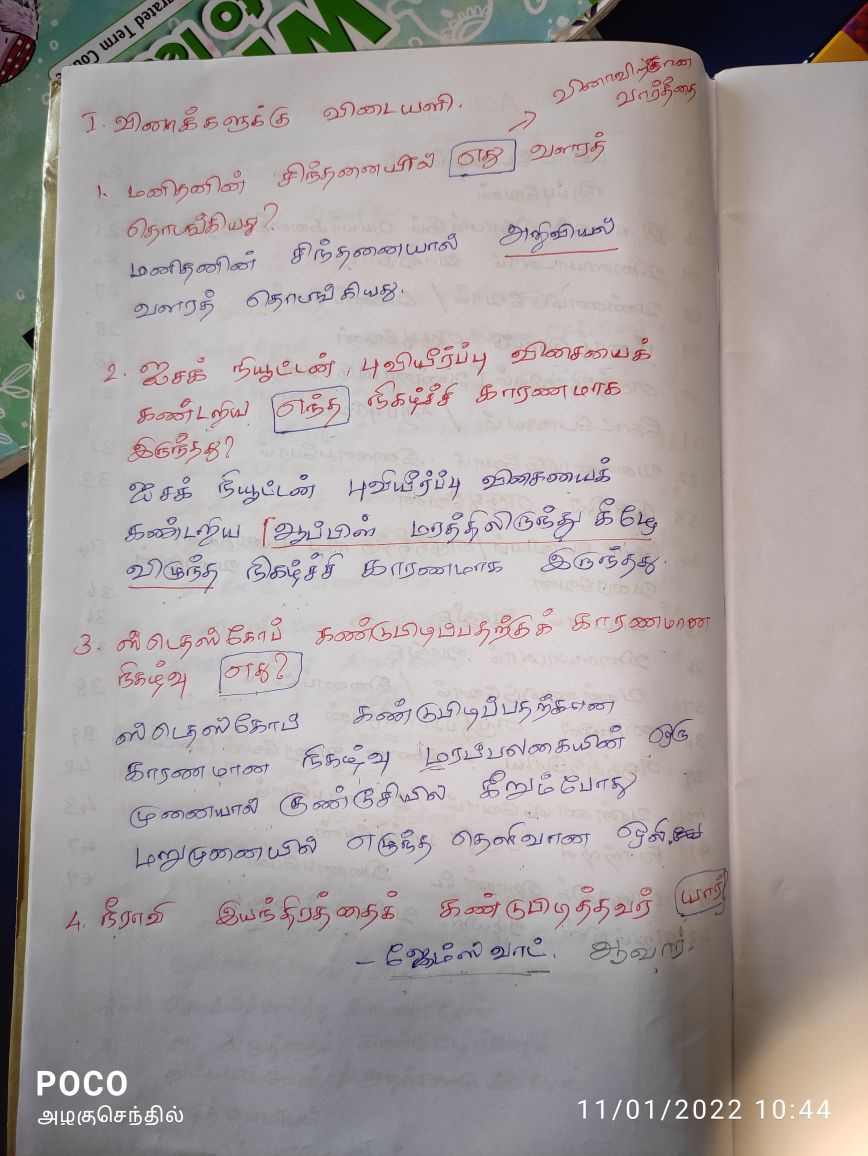 grated Term Cou
I. வினாக்களுக்கு விடையளி.
வினாவிற்கான
வார்த்தை
1. மனிதனின் சிந்தனையில் எது வளரத்
தொடங்கியது?
மனிதனின் சிந்தனையால் அறிவியல்
வளரத் தொடங்கியது.
2. ஐசக் நியூட்டன் புவியீர்ப்பு விசையைக்
கண்டறிய எந்த நிகழ்ச்சி காரணமாக
இருந்தது?
ஐசக் நியூட்டன் புவியீர்ப்பு விசையைக்
கண்டறிய ஆப்பிள் மரத்திலிருந்து கீழே
விழுந்த நிகழ்ச்சி காரணமாக இருந்தது.
3. ஸ்டெதஸ்கோப் கண்டுபிடிப்பதற்குக் காரணமான
நிகழ்வு எது?
ஸ்டெதஸ்கோப் கண்டுபிடிப்பதற்கான
காரணமான நிகழ்வு மரப்பலகையின் ஒரு
முனையால் குண்டூசியில் கீறும்போது
மறுமுனையில் எழுந்த தெளிவான ஒலி.
4. நீராவி இயந்திரத்தைக் கண்டுபிடித்தவர் யார்
- ஜேம்ஸ் வாட். ஆவார்.
POCO
அழகுசெந்தில்
11/01/2022 10:44